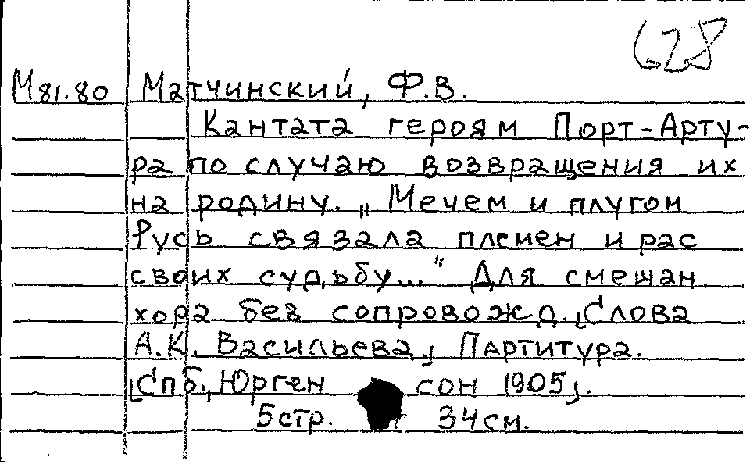 628
М81.80 Матчинский, Ф.В.
Кантата героям Порт-Арту-
ра по случаю возвращения их
на родину. „Мечем и плугом
Русь связала племен и рас
своих судьбу..." Для смешан.
хора без сопровожд. [Слова
А.К. Васильева] Партитура.
[Спб., Юргенсон 1905].
5 стр. 34 см.